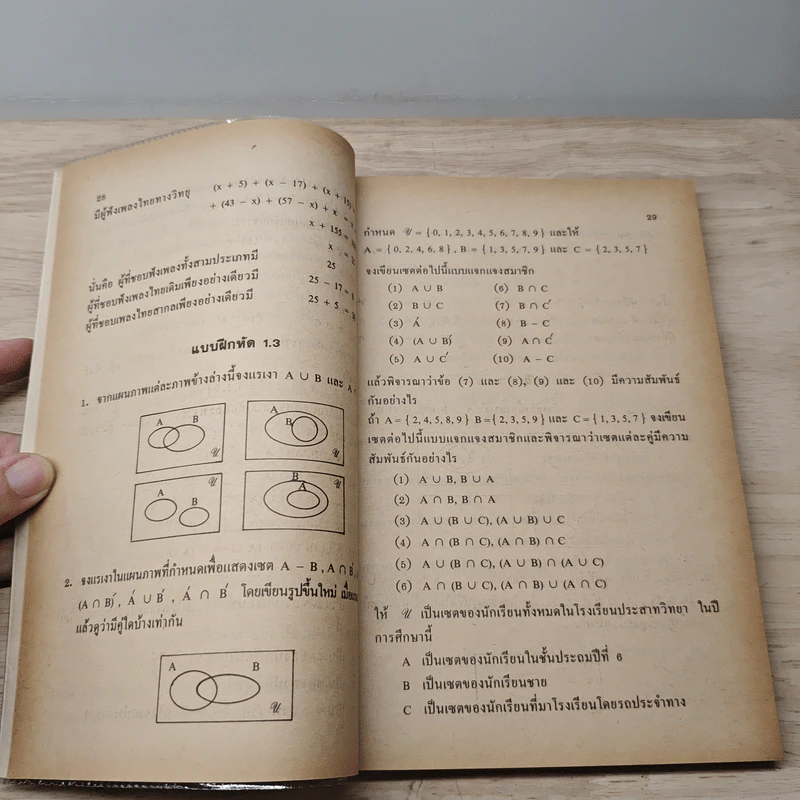 28
มีผู้ฟังเพลงไทยทางวิทยุ (x + 5) + (x − 17) + (x + 15)
+ (43 − x) + (57 − x) + x
x + 155
x
นั่นคือ ผู้ที่ชอบฟังเพลงทั้งสามประเภทมี 25
ผู้ที่ชอบฟังเพลงไทยเดิมเพียงอย่างเดียวมี 25 − 17 =
ผู้ที่ชอบเพลงไทยสากลเพียงอย่างเดียวมี 25 + 5 =
แบบฝึกหัด 1.3
1. จากแผนภาพแต่ละภาพข้างล่างนี้จงแรเงา A ∪ B และ A
A B 𝒰
A B 𝒰
A B 𝒰
B A 𝒰
2. จงแรเงาในแผนภาพที่กำหนดเพื่อแสดงเซต A − B, A ∩ B′,
(A ∩ B)′, A′ ∪ B′, A′ ∩ B′ โดยเขียนรูปขึ้นใหม่
แล้วดูว่ามีคู่ใดบ้างเท่ากัน
A B 𝒰
29
กำหนด 𝒰 = { 0, 1, 2, 3, 4, 5, 6, 7, 8, 9 } และให้
A = { 0, 2, 4, 6, 8 }, B = { 1, 3, 5, 7, 9 } และ C = { 2, 3, 5, 7 }
จงเขียนเซตต่อไปนี้แบบแจกแจงสมาชิก
(1) A ∪ B (6) B ∩ C
(2) B ∪ C (7) B ∩ C′
(3) A′ (8) B − C
(4) (A ∪ B)′ (9) A ∩ C′
(5) A ∪ C′ (10) A − C
แล้วพิจารณาว่าข้อ (7) และ (8), (9) และ (10) มีความสัมพันธ์
กันอย่างไร
ถ้า A = { 2, 4, 5, 8, 9 } B = { 2, 3, 5, 9 } และ C = { 1, 3, 5, 7 } จงเขียน
เซตต่อไปนี้แบบแจกแจงสมาชิกและพิจารณาว่าเซตแต่ละคู่มีความ
สัมพันธ์กันอย่างไร
(1) A ∪ B, B ∪ A
(2) A ∩ B, B ∩ A
(3) A ∪ (B ∪ C), (A ∪ B) ∪ C
(4) A ∩ (B ∩ C), (A ∩ B) ∩ C
(5) A ∪ (B ∩ C), (A ∪ B) ∩ (A ∪ C)
(6) A ∩ (B ∪ C), (A ∩ B) ∪ (A ∩ C)
ให้ 𝒰 เป็นเซตของนักเรียนทั้งหมดในโรงเรียนประสาทวิทยา ในปี
การศึกษานี้
A เป็นเซตของนักเรียนในชั้นประถมปีที่ 6
B เป็นเซตของนักเรียนชาย
C เป็นเซตของนักเรียนที่มาโรงเรียนโดยรถประจำทาง